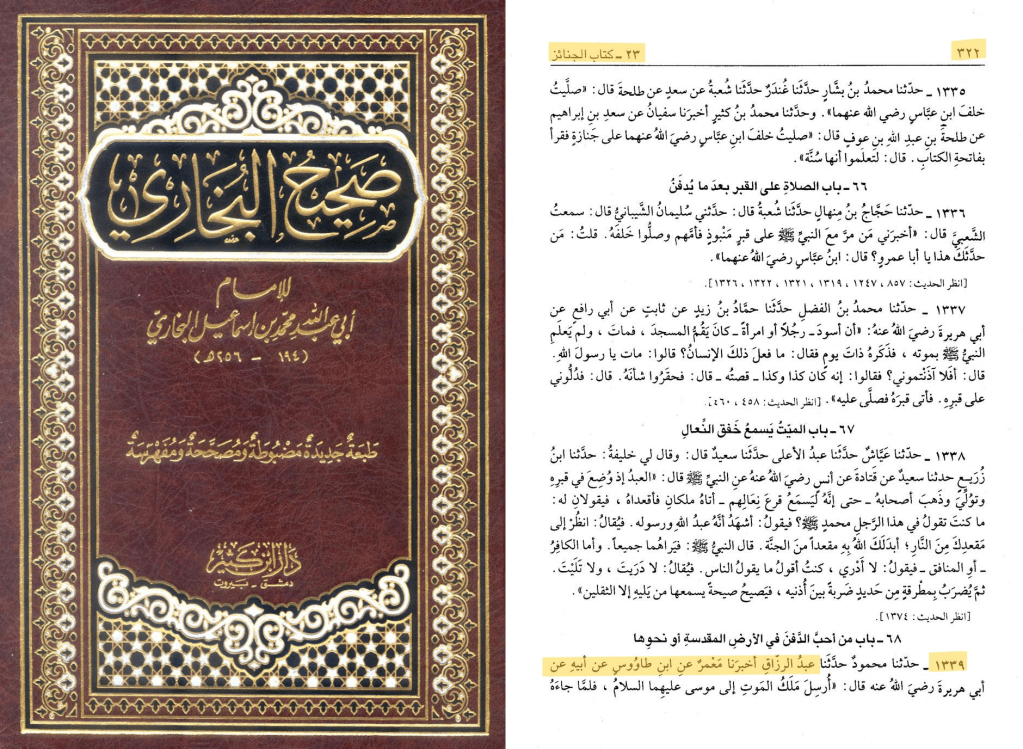 صَحِيحُ البُخَارِي
للإمام
أبي عبد الله محمد بن إسماعيل البخاري
(١٩٤ - ٢٥٦هـ)
طَبعَةٌ جَدِيدَةٌ مَضْبُوطَةٌ وَمُصَحَّحَةٌ وَمُفَهْرَسَةٌ
دَارُ ابْنِ كَثِيرٍ
دمشق - بيروت
٢٣ - كتاب الجنائز
٣٢٢
١٣٣٥ - حدّثنا محمدُ بنُ بشَّارٍ حدَّثَنا غُندَرٌ حدَّثَنا شُعبةُ عن سعدٍ عن طلحةَ قال: «صلَّيتُ
خلفَ ابنِ عبَّاسٍ رضي الله عنهما». وحدَّثنا محمدُ بنُ كثيرٍ أخبرَنا سفيانُ عن سعدِ بنِ إبراهيم
عن طلحةَ بنِ عبدِ اللهِ بنِ عوفٍ قال: «صليتُ خلفَ ابنِ عبَّاسٍ رضيَ اللهُ عنهما على جَنازةٍ فقرأ
بفاتحةِ الكتابِ. قال: لتعلَموا أنها سُنَّة».
٦٦ - باب الصلاةِ على القبرِ بعدَ ما يُدفَنُ
١٣٣٦ - حدّثنا حَجَّاجُ بنُ مِنهالٍ حدَّثَنا شُعبةُ قال: حدَّثني سُليمانُ الشَّيبانيُّ قال: سمعتُ
الشَّعبيَّ قال: «أخبرَني مَن مرَّ معَ النبيِّ ﷺ على قبرٍ مَنْبوذٍ فأمَّهم وصلُّوا خَلفَهُ. قلتُ: مَن
حدَّثَكَ هذا يا أبا عمرٍو؟ قال: ابنُ عبَّاسٍ رضيَ اللهُ عنهما».
[انظر الحديث: ٨٥٧ ، ١٢٤٧ ، ١٣١٩ ، ١٣٢١ ، ١٣٢٢ ، ١٣٢٦].
١٣٣٧ - حدّثنا محمدُ بنُ الفضلِ حدَّثَنا حمَّادُ بنُ زيدٍ عن ثابتٍ عن أبي رافعٍ عن
أبي هريرةَ رضيَ اللهُ عنهُ: «أن أسودَ - رجُلاً أو امرأةً - كانَ يَقُمُّ المسجدَ ، فماتَ ، ولم يَعلمِ
النبيُّ ﷺ بموتِه ، فذَكَرهُ ذاتَ يومٍ فقال: ما فعلَ ذلكَ الإنسانُ؟ قالوا: مات يا رسولَ اللهِ.
قال: أفَلا آذَنْتموني؟ فقالوا: إنه كان كذا وكذا - قصتُه - قال: فحقَرُوا شأنَهُ. قال: فدُلُّوني
على قبرِه. فأتى قبرَهُ فصلَّى عليه». [انظر الحديث: ٤٥٨ ، ٤٦٠].
٦٧ - باب الميّتُ يَسمعُ خَفقَ النِّعالِ
١٣٣٨ - حدّثنا عَيَّاشٌ حدَّثَنا عبدُ الأعلى حدَّثَنا سعيدٌ قال: وقال لي خليفةُ: حدَّثَنا ابنُ
زُرَيعٍ حدثنا سعيدٌ عن قَتادةَ عن أنسٍ رضيَ اللهُ عنهُ عنِ النبيِّ ﷺ قال: «العبدُ إذ وُضِعَ في قبرِه
وتوُلِّيَ وذَهبَ أصحابهُ - حتى إنَّهُ لَيَسمَعُ قرعَ نِعَالِهم - أتاهُ ملَكانِ فأقعَداهُ ، فيقولانِ له:
ما كنتَ تقولُ في هذا الرَّجلِ محمدٍ ﷺ؟ فيقولُ: أشهَدُ أنَّهُ عبدُ اللهِ ورسوله. فيُقالُ: انظُرْ إلى
مَقعدِكَ مِنَ النَّارِ؛ أبدَلَكَ اللهُ بِه مقعداً منَ الجنَّة. قال النبيُّ ﷺ: فيَراهُما جميعاً. وأما الكافِرُ
- أو المنافق - فيقولُ: لا أَدْري ، كنتُ أقولُ ما يقولُ الناس. فيُقالُ: لا دَرَيتَ ، ولا تَلَيْتَ.
ثمَّ يُضرَبُ بِمِطْرقةٍ مِن حَديدٍ ضَربةً بينَ أُذنيه ، فيَصيحُ صيحةً يسمعها من يَليهِ إلا الثقلين».
[انظر الحديث: ١٣٧٤].
٦٨ - باب من أحبَّ الدَّفنَ في الأرضِ المقدسةِ أو نحوِها
١٣٣٩ - حدّثنا محمودٌ حدَّثَنا عبدُ الرزاقِ أخبرَنا مَعْمرٌ عنِ ابنِ طاوُوسٍ عن أبيهِ عن
أبي هريرةَ رضيَ اللهُ عنه قال: «أُرسِلَ مَلَكُ المَوتِ إلى موسى عليهِما السلامُ ، فلمَّا جاءَهُ